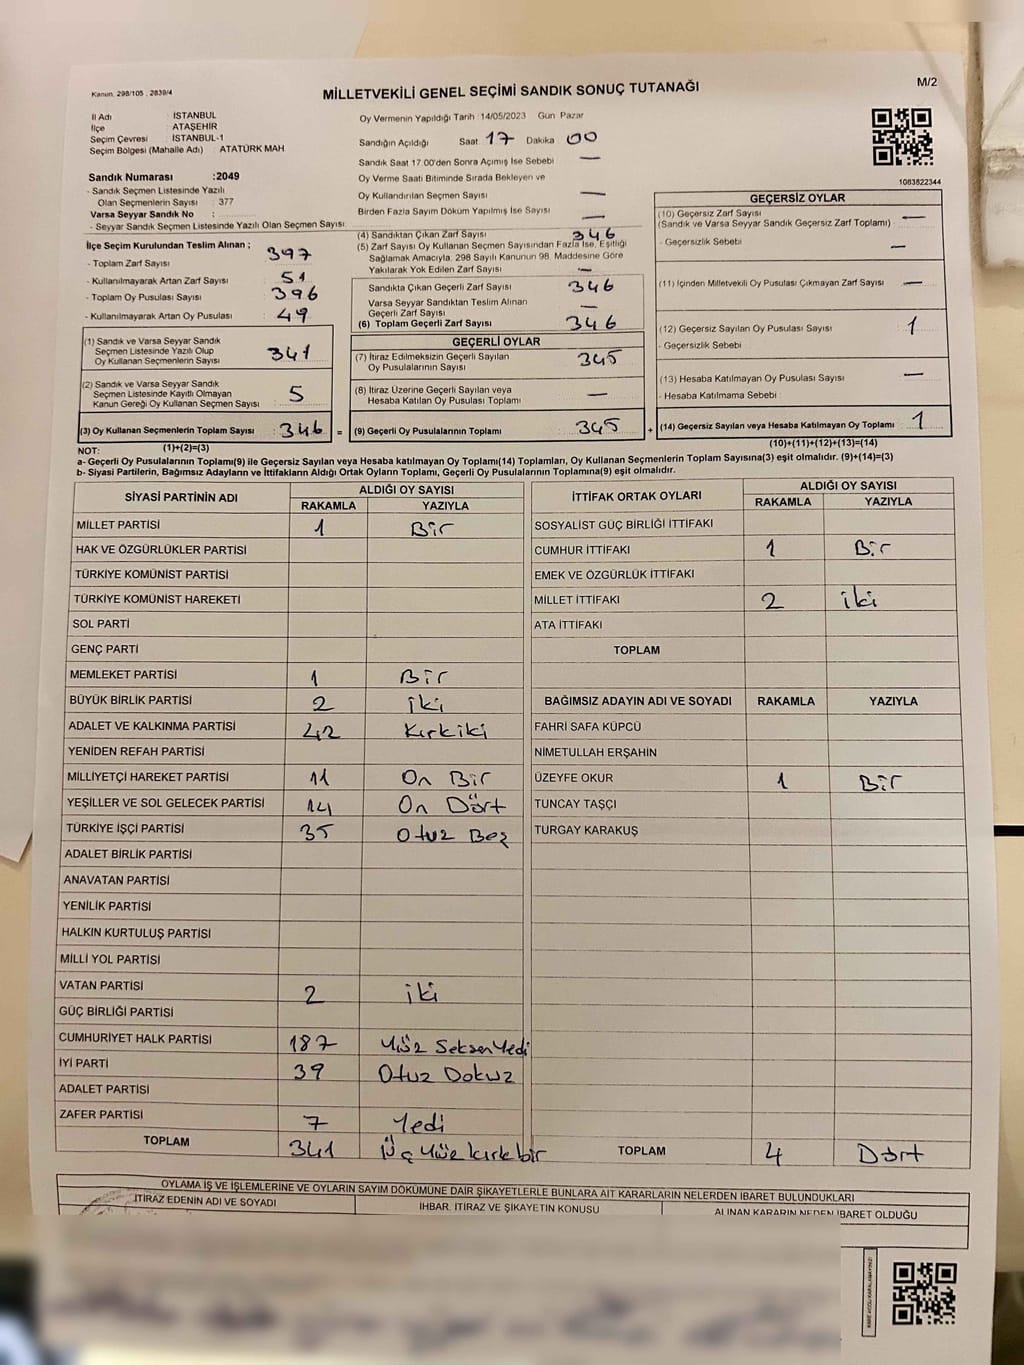 Kanun, 298/105 , 2839/4
MİLLETVEKİLİ GENEL SEÇİMİ SANDIK SONUÇ TUTANAĞI
M/2
İl Adı : İSTANBUL
İlçe : ATAŞEHİR
Seçim Çevresi : İSTANBUL-1
Seçim Bölgesi (Mahalle Adı) : ATATÜRK MAH
Sandık Numarası :2049
- Sandık Seçmen Listesinde Yazılı
Olan Seçmenlerin Sayısı : 377
Varsa Seyyar Sandık No :
- Seyyar Sandık Seçmen Listesinde Yazılı Olan Seçmen Sayısı:
Oy Vermenin Yapıldığı Tarih :14/05/2023 Gün Pazar
Sandığın Açıldığı Saat 17 Dakika 00
Sandık Saat 17.00'den Sonra Açımış İse Sebebi —
Oy Verme Saati Bitiminde Sırada Bekleyen ve
Oy Kullandırılan Seçmen Sayısı —
Birden Fazla Sayım Döküm Yapılmış İse Sayısı —
1083822344
İlçe Seçim Kurulundan Teslim Alınan ;
- Toplam Zarf Sayısı 397
- Kullanılmayarak Artan Zarf Sayısı 51
- Toplam Oy Pusulası Sayısı 396
- Kullanılmayarak Artan Oy Pusulası 49
(1) Sandık ve Varsa Seyyar Sandık
Seçmen Listesinde Yazılı Olup
Oy Kullanan Seçmenlerin Sayısı 341
(2) Sandık ve Varsa Seyyar Sandık
Seçmen Listesinde Kayıtlı Olmayan
Kanun Gereği Oy Kullanan Seçmen Sayısı 5
(3) Oy Kullanan Seçmenlerin Toplam Sayısı : 346 =
(4) Sandıktan Çıkan Zarf Sayısı 346
(5) Zarf Sayısı Oy Kullanan Seçmen Sayısından Fazla İse, Eşitliği
Sağlamak Amacıyla, 298 Sayılı Kanunun 98. Maddesine Göre
Yakılarak Yok Edilen Zarf Sayısı —
Sandıkta Çıkan Geçerli Zarf Sayısı 346
Varsa Seyyar Sandıktan Teslim Alınan
Geçerli Zarf Sayısı —
(6) Toplam Geçerli Zarf Sayısı 346
GEÇERLİ OYLAR
(7) İtiraz Edilmeksizin Geçerli Sayılan
Oy Pusulalarının Sayısı 345
(8) İtiraz Üzerine Geçerli Sayılan veya
Hesaba Katılan Oy Pusulası Toplamı —
(9) Geçerli Oy Pusulalarının Toplamı 345 +
GEÇERSİZ OYLAR
(10) Geçersiz Zarf Sayısı
(Sandık ve Varsa Seyyar Sandık Geçersiz Zarf Toplamı) —
- Geçersizlik Sebebi —
(11) İçinden Milletvekili Oy Pusulası Çıkmayan Zarf Sayısı —
(12) Geçersiz Sayılan Oy Pusulası Sayısı 1
- Geçersizlik Sebebi :
(13) Hesaba Katılmayan Oy Pusulası Sayısı —
- Hesaba Katılmama Sebebi :
(14) Geçersiz Sayılan veya Hesaba Katılmayan Oy Toplamı 1
NOT: (1)+(2)=(3)
(10)+(11)+(12)+(13)=(14)
a- Geçerli Oy Pusulalarının Toplamı(9) ile Geçersiz Sayılan veya Hesaba katılmayan Oy Toplamı(14) Toplamları, Oy Kullanan Seçmenlerin Toplam Sayısına(3) eşit olmalıdır. (9)+(14)=(3)
b- Siyasi Partilerin, Bağımsız Adayların ve İttifakların Aldığı Ortak Oyların Toplamı, Geçerli Oy Pusulalarının Toplamına(9) eşit olmalıdır.
SİYASİ PARTİNİN ADI ALDIĞI OY SAYISI
RAKAMLA YAZIYLA
MİLLET PARTİSİ 1 Bir
HAK VE ÖZGÜRLÜKLER PARTİSİ
TÜRKİYE KOMÜNİST PARTİSİ
TÜRKİYE KOMÜNİST HAREKETİ
SOL PARTİ
GENÇ PARTİ
MEMLEKET PARTİSİ 1 Bir
BÜYÜK BİRLİK PARTİSİ 2 iki
ADALET VE KALKINMA PARTİSİ 42 Kırkiki
YENİDEN REFAH PARTİSİ
MİLLİYETÇİ HAREKET PARTİSİ 11 On Bir
YEŞİLLER VE SOL GELECEK PARTİSİ 14 On Dört
TÜRKİYE İŞÇİ PARTİSİ 35 Otuz Beş
ADALET BİRLİK PARTİSİ
ANAVATAN PARTİSİ
YENİLİK PARTİSİ
HALKIN KURTULUŞ PARTİSİ
MİLLİ YOL PARTİSİ
VATAN PARTİSİ 2 iki
GÜÇ BİRLİĞİ PARTİSİ
CUMHURİYET HALK PARTİSİ 187 Yüz Seksen Yedi
İYİ PARTİ 39 Otuz Dokuz
ADALET PARTİSİ
ZAFER PARTİSİ 7 Yedi
TOPLAM 341 Üç Yüz kırk bir
İTTİFAK ORTAK OYLARI ALDIĞI OY SAYISI
RAKAMLA YAZIYLA
SOSYALİST GÜÇ BİRLİĞİ İTTİFAKI
CUMHUR İTTİFAKI 1 Bir
EMEK VE ÖZGÜRLÜK İTTİFAKI
MİLLET İTTİFAKI 2 iki
ATA İTTİFAKI
TOPLAM
BAĞIMSIZ ADAYIN ADI VE SOYADI RAKAMLA YAZIYLA
FAHRİ SAFA KÜPCÜ
NİMETULLAH ERŞAHİN
ÜZEYFE OKUR 1 Bir
TUNCAY TAŞÇI
TURGAY KARAKUŞ
TOPLAM 4 Dört
OYLAMA İŞ VE İŞLEMLERİNE VE OYLARIN SAYIM DÖKÜMÜNE DAİR ŞİKAYETLERLE BUNLARA AİT KARARLARIN NELERDEN İBARET BULUNDUKLARI
İTİRAZ EDENİN ADI VE SOYADI İHBAR, İTİRAZ VE ŞİKAYETİN KONUSU ALINAN KARARIN NEDEN İBARET OLDUĞU